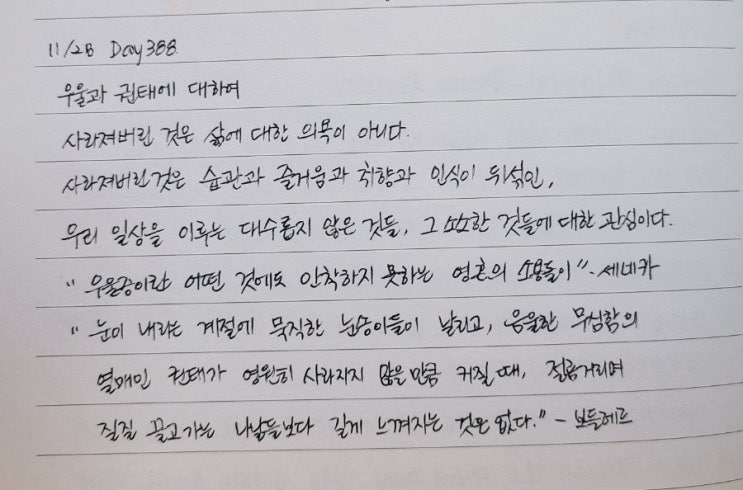 11/28 Day 388
우울과 권태에 대하여
사라져버린 것은 삶에 대한 의욕이 아니다.
사라져버린 것은 습관과 즐거움과 취향과 인식이 뒤섞인,
우리 일상을 이루는 대수롭지 않은 것들, 그 소소한 것들에 대한 관심이다.
"우울증이란 어떤 것에도 안착하지 못하는 영혼의 소용돌이" - 세네카
"눈이 내리는 계절에 묵직한 눈송이들이 날리고, 음울한 무심함의
열매인 권태가 영원히 사라지지 않을 만큼 커질 때, 절름거리며
질질 끌고가는 나날들보다 길게 느껴지는 것은 없다." - 보들레르